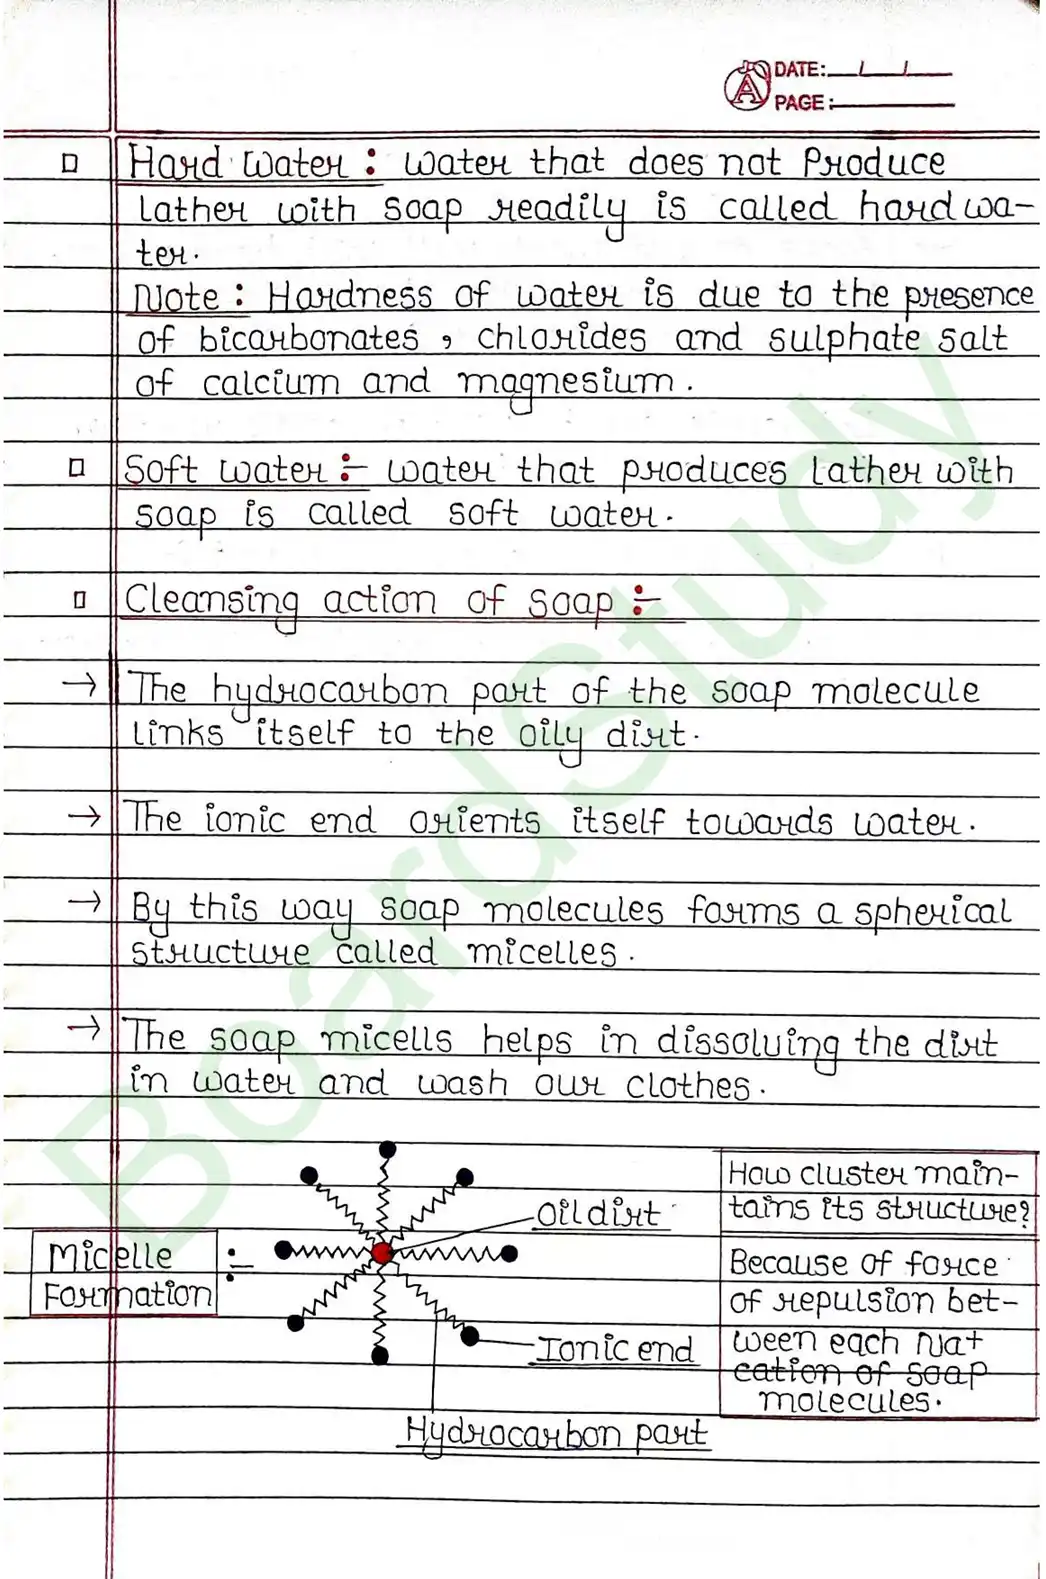 DATE:
PAGE:
Hard Water : Water that does not Produce
Lather with soap readily is called hard wa-
ter.
Note : Hardness of water is due to the presence
of bicarbonates , chlorides and sulphate salt
of calcium and magnesium.
Soft water :- water that produces Lather with
soap is called soft water.
Cleansing action of soap :-
→ The hydrocarbon part of the soap molecule
links itself to the oily dirt.
→ The ionic end orients itself towards water.
→ By this way soap molecules forms a spherical
structure called micelles.
→ The soap micells helps in dissolving the dirt
in water and wash our clothes.
Micelle
Formation :-
Oil dirt
Ionic end
Hydrocarbon part
How cluster main-
tains its structure?
Because of force
of repulsion bet-
ween each Na+
cation of soap
molecules.
BoardStudy